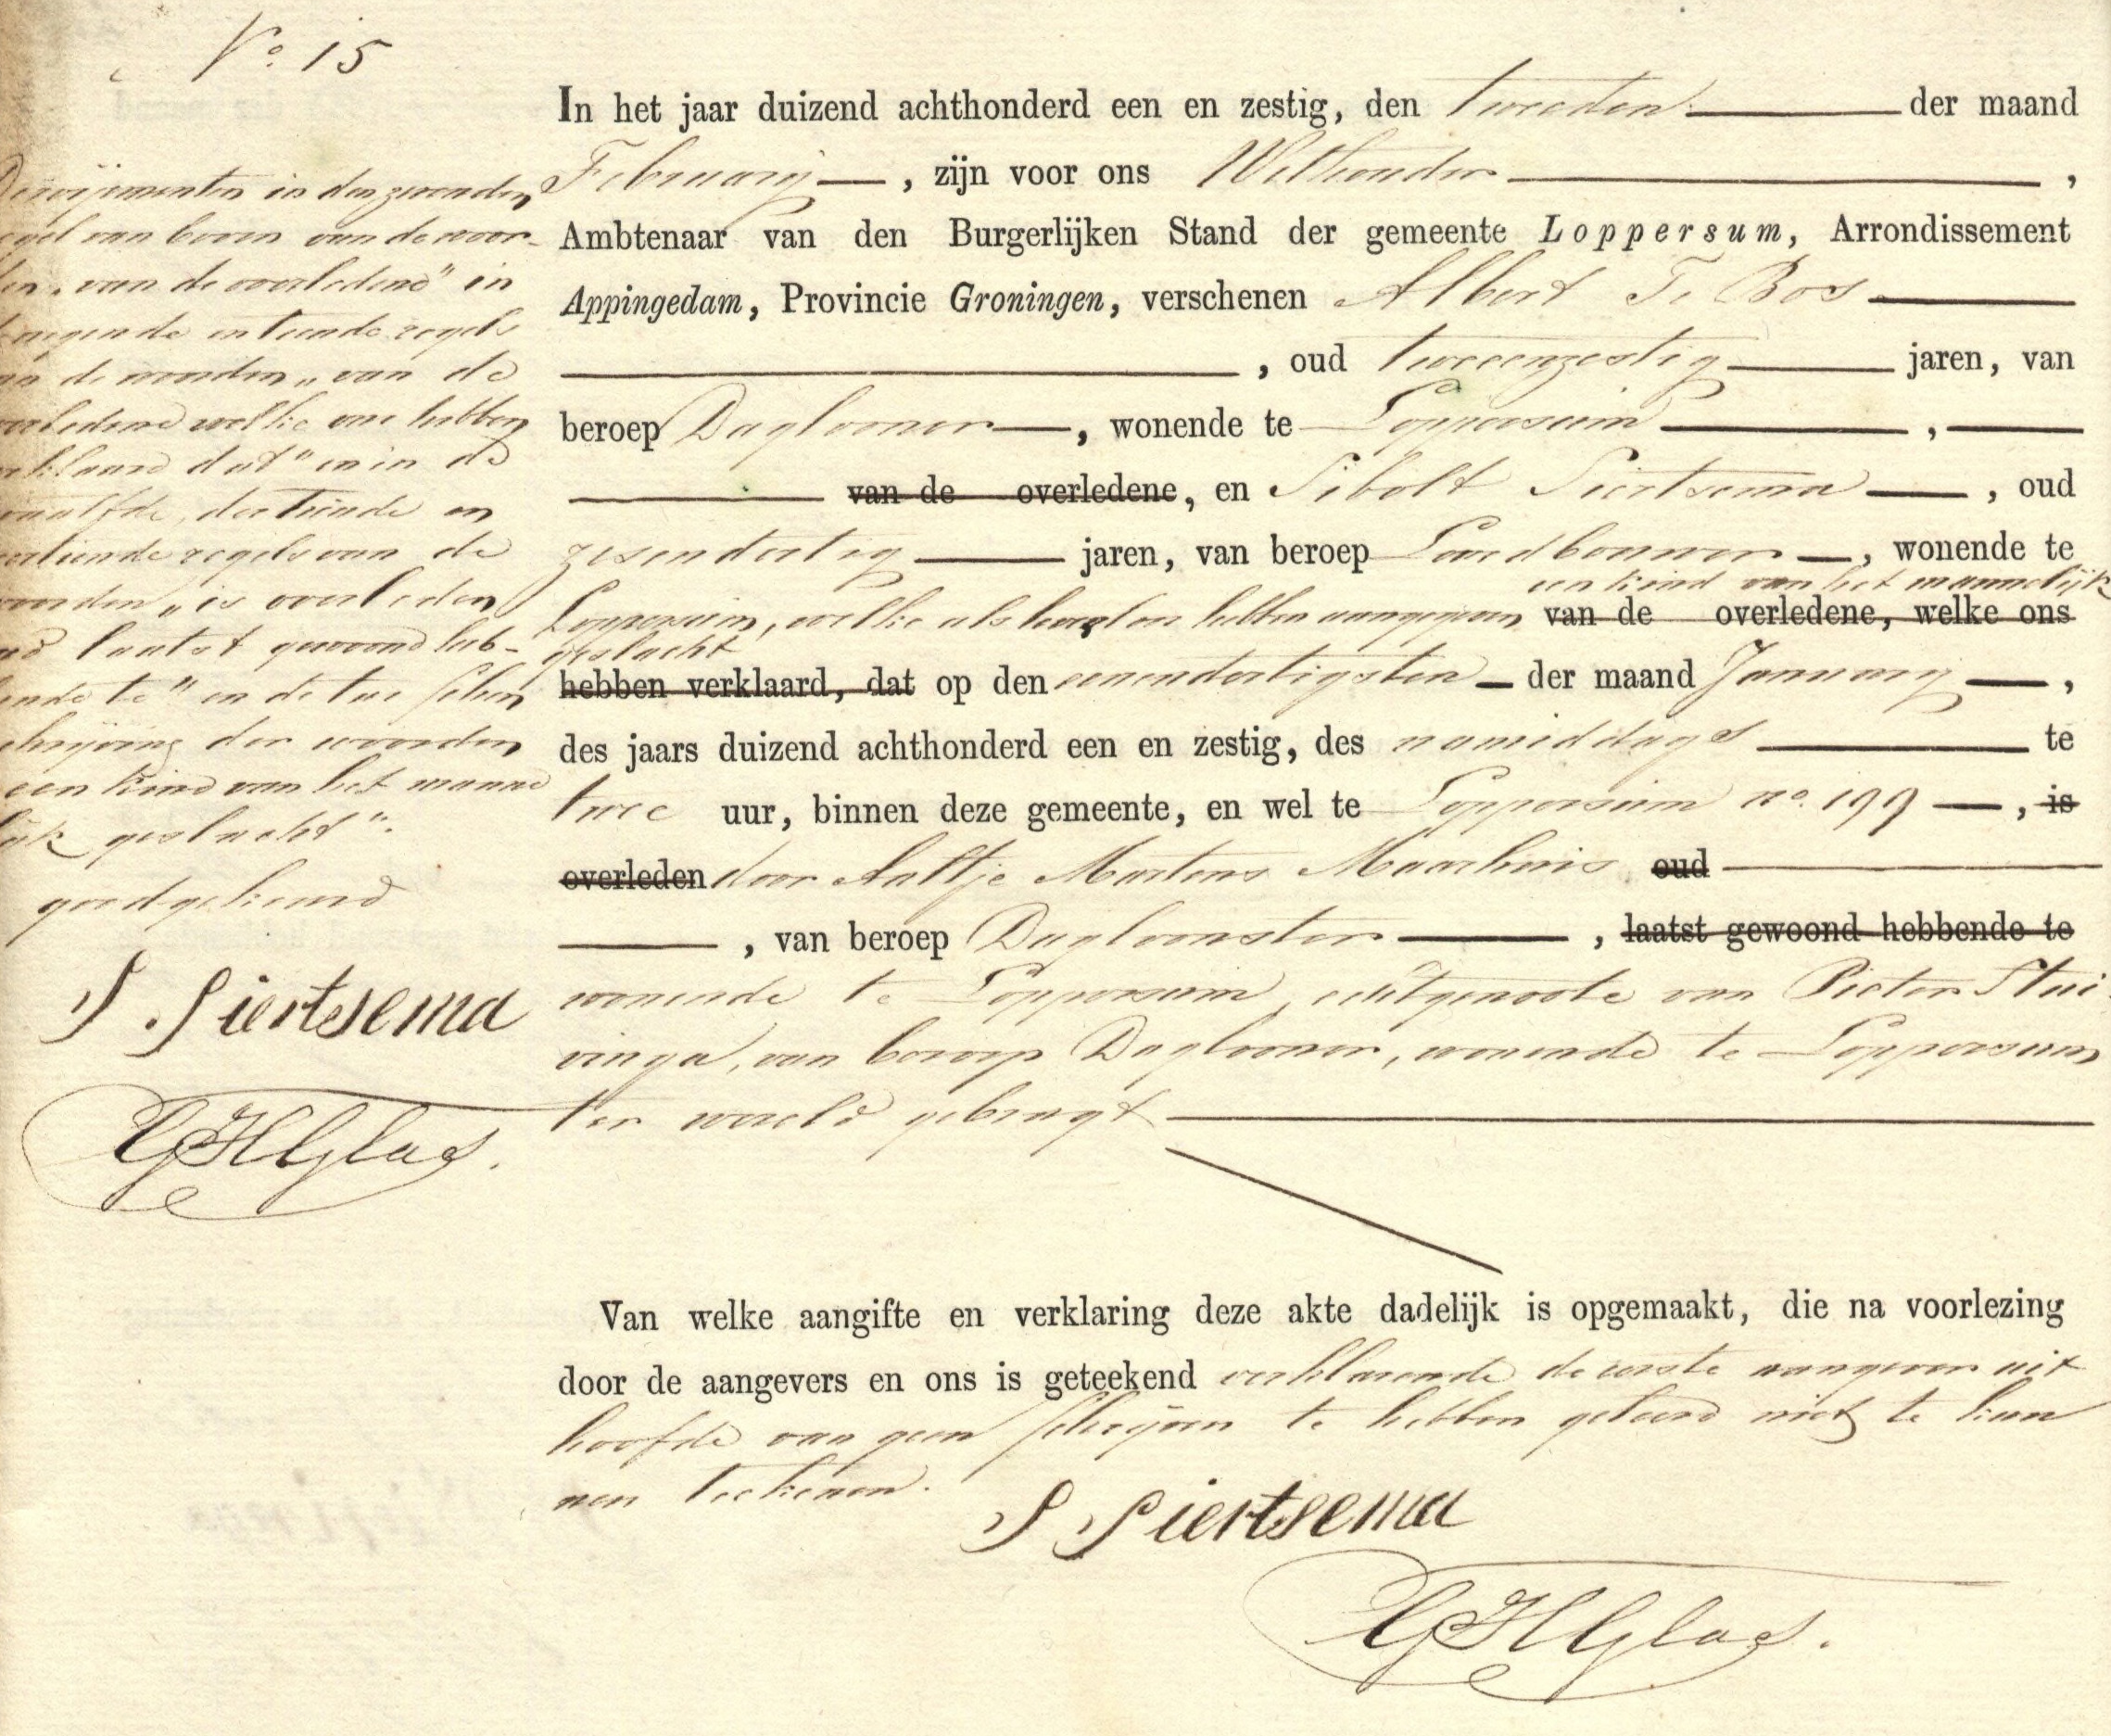 No. 15
In het jaar duizend achthonderd een en zestig, den tweeden der maand
February, zijn voor ons Wethouder,
Ambtenaar van den Burgerlijken Stand der gemeente Loppersum, Arrondissement
Appingedam, Provincie Groningen, verschenen Albert Te Bos
, oud tweeenzestig jaren, van
beroep Daglooner, wonende te Loppersum,
van de overledene, en Sibolt Siertsema, oud
zesendertig jaren, van beroep Landbouwer, wonende te
een kind van het mannelijk
Loppersum, welke als levenloos hebben aangegeven van de overledene, welke ons
geslacht
hebben verklaard, dat op den eenendertigsten der maand January,
des jaars duizend achthonderd een en zestig, des namiddags te
twee uur, binnen deze gemeente, en wel te Loppersum no. 199, is
overleden door Aaltje Martens Maarhuis oud
, van beroep Dagloonster, laatst gewoond hebbende te
wonende te Loppersum, echtgenoote van Pieter Stui-
vinga, van beroep Daglooner, wonende te Loppersum
ter wereld gebragt
Van welke aangifte en verklaring deze akte dadelijk is opgemaakt, die na voorlezing
door de aangevers en ons is geteekend verklarende de eerste aangever uit
hoofde van geen schrijven te hebben geleerd niet te kun
nen teekenen.
S Siertsema
GHGlas.
in den zevenden
van boven van de woor-
van de overledene" in
en tiende regels
de woorden „van de
overledene welke ons hebben
verklaard dat" en in de
twaalfde, dertiende en
veertiende regels van de
woorden „is overleden
laatst gewoond heb-
bende te" en de tus schen
schrijving der woorden
een kind van het manne
lijk geslacht".
goedgekeurd
S. Siertsema
GHGlas.